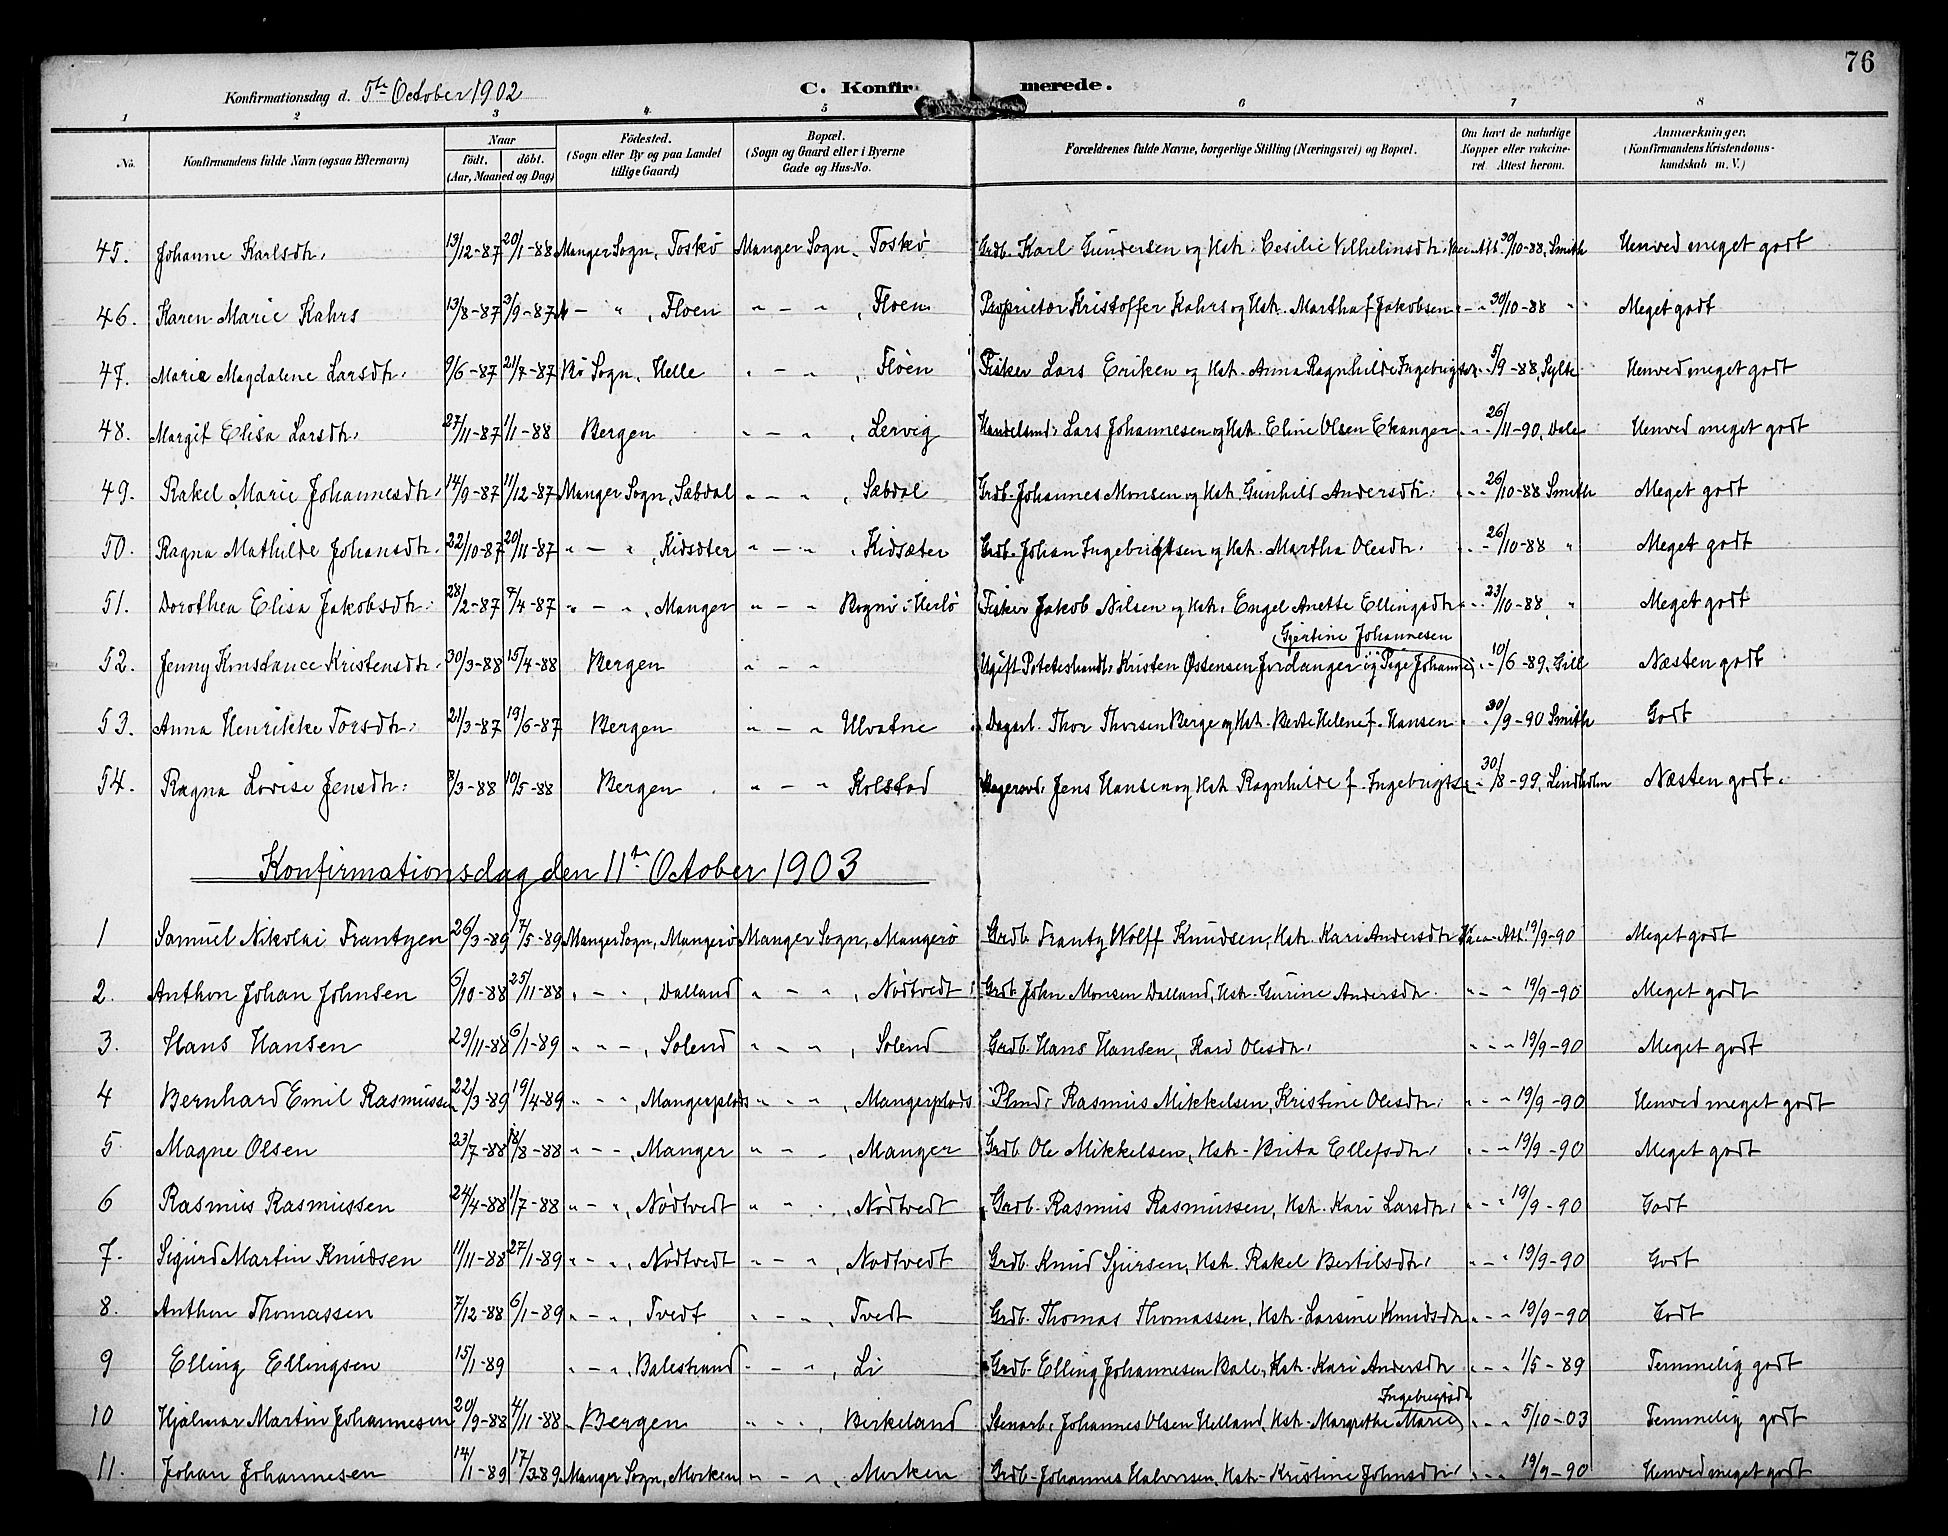 76
Konfirmationsdag d. 5te October 1902 C. Konfirmerede.
1 2 3 4 5 6 7 8
No. Konfirmandens fulde Navn (ogsaa Efternavn) Naar födt. döbt. (Aar, Maaned og Dag) Födested. (Sogn eller By og paa Landet tillige Gaard) Bopæl. (Sogn og Gaard eller i Byerne Gade og Hus-No. Forældrenes fulde Navne, borgerlige Stilling (Næringsvei) og Bopæl. Om havt de naturlige Kopper eller vaccineret Attest herom. Anmærkninger. (Konfirmandens Kristendomskundskab m. V.)
45. Johanne Karlsdtr. 13/12-87 20/1-88 Manger Sogn, Toskö Manger Sogn, Toskö Grdb. Karl Gundersen og Hst. Cesilie Vilhelmsdtr. Vacc. Att. 30/10-88, Smith Henved meget godt
46. Karen Marie Kahrs 13/8-87 3/9-87 " - " , Floen " - " , Floen Proprietær Kristoffer Kahrs og Hst. Martha f. Jakobsen " - " 30/10-88 " Meget godt
47. Marie Magdalene Larsdtr. 9/6-87 21/7-87 Bö Sogn, Helle " - " , Flöen Fisker Lars Eriken og Hst. Anna Ragnhilde Ingebrigtsdtr. 5/9-88, Sylte Henved meget godt
48. Margit Elisa Larsdtr. 27/11-87 1/1-88 Bergen " - " , Lervig Handelsmd. Lars Johannesen og Hst. Eline Olsen Ekanger " - " 26/11-90, Dale Henved meget godt
49. Rakel Marie Johannesdtr. 14/9-87 11/12-87 Manger Sogn, Sæbdal " - " , Sæbdal Grdb. Johannes Monsen og Hst. Gunhild Andersdtr. " - " 26/10-88 Smith Meget godt
50. Ragna Mathilde Johansdtr. 22/10-87 20/11-87 " - " , Kidsæter " - " , Kidsæter Grdb. Johan Ingebrigtsen og Hst. Martha Olesdtr. " - " 26/10-88 " Meget godt
51. Dorothea Elisa Jakobsdtr. 28/2-87 /4-87 " - " , Manger " - " Bognö i Herlö Fisker Jakob Nilsen og Hst. Engel Anette Ellingsdtr. " - " 23/10-88, " Meget godt
Gjertine Johannesen
52. Jenny Konstance Kristensdtr. 30/3-88 15/4-88 Bergen " - " Ugift Poteteshandl. Kristen Östensen Jordanger og Pige Johanne " - " 10/6-89, Gill Næsten godt
53. Anna Henrikke Torsdtr. 21/3-87 19/6-87 Bergen " - " Ulvatne Dagarb. Thor Thorsen Berge og Hst. Berte Helene f. Hansen " 30/9-90 Smith Godt
54. Ragna Lovise Jensdtr. 8/3-88 10/5-88 Bergen " - " Kolstad Jens Hansen og Hst. Ragnhilde f. Ingebrigts " 30/8-99, Lindholm Næsten godt.
Konfirmationsdag den 11te October 1903
1 Samuel Nikolai Frantzen 26/3-89 17/5-89 Manger Sogn, Mangerö Manger Sogn, Mangerö Grdb. Frantz Wolff Knudsen, Hst. Kari Andersdtr. Vacc. Att. 19/9-90 Meget godt
2. Anthon Johan Johnsen 5/10-88 25/11-88 " - " , Dalland " - " , Nödtvedt Grdb. John Monsen Dalland, Hst. Gurine Andersdtr. " - " 19/9-90 Meget godt
3. Hans Hansen 29/11-88 6/1-89 " - " , Solend " - " , Solend Grdb. Hans Hansen, Kari Olesdtr. " - " 19/9-90 Meget godt
4 Bernhard Emil Rasmussen 22/3-89 19/4-89 " - " , Mangerplads " - " , Mangerplads Plmd. Rasmus Mikkelsen, Kristine Olesdtr. " - " 19/9-90 Henved meget godt
5. Magne Olsen 23/7-88 18/8-88 " - " , Manger " - " , Manger Grdb. Ole Mikkelsen, Hst. Brita Ellefsdtr. " - " 19/9-90 Meget godt
6 Rasmus Rasmussen 24/4-88 1/7-88 " - " , Nödtvedt " - " , Nödtvedt Grdb. Rasmus Rasmussen, Hst. Kari Larsdtr. " - " 19/9-90 Godt
7. Sigurd Martin Knudsen 11/11-88 27/1-89 " - " , Nödtvedt " - " , Nödtvedt Grdb. Knud Sjursen, Hst. Rakel Bertilsdtr. " - " 19/9-90 Godt
8. Anthon Thomassen 7/12-88 6/1-89 " - " , Tvedt " - " , Tvedt Grdb. Thomas Thomassen, Hst. Larsine Knudsdtr " - " 19/9-90 Godt
9 Elling Ellingsen 15/1-89 " - " , Balestrand " - " , Li Grdb. Elling Johannesen Bale, Hst. Kari Andersdtr " - " 1/5-89 Temmelig godt
Ingebrigtsdtr
10 Hjalmar Martin Johannesen 20/9-88 4/11-88 Bergen " - " , Birkeland Stenarb. Johannes Olsen Helland, Hst. Margrethe Marie " - " 5/10-03 Temmelig godt
11. Johan Johannesen 14/1-89 17/3-89 Manger Sogn, Morken " - " , Morken Grdb. Johannes Halvorsen, Hst. Kristine Johnsdtr. " - " 19/9-90 Henved meget godt